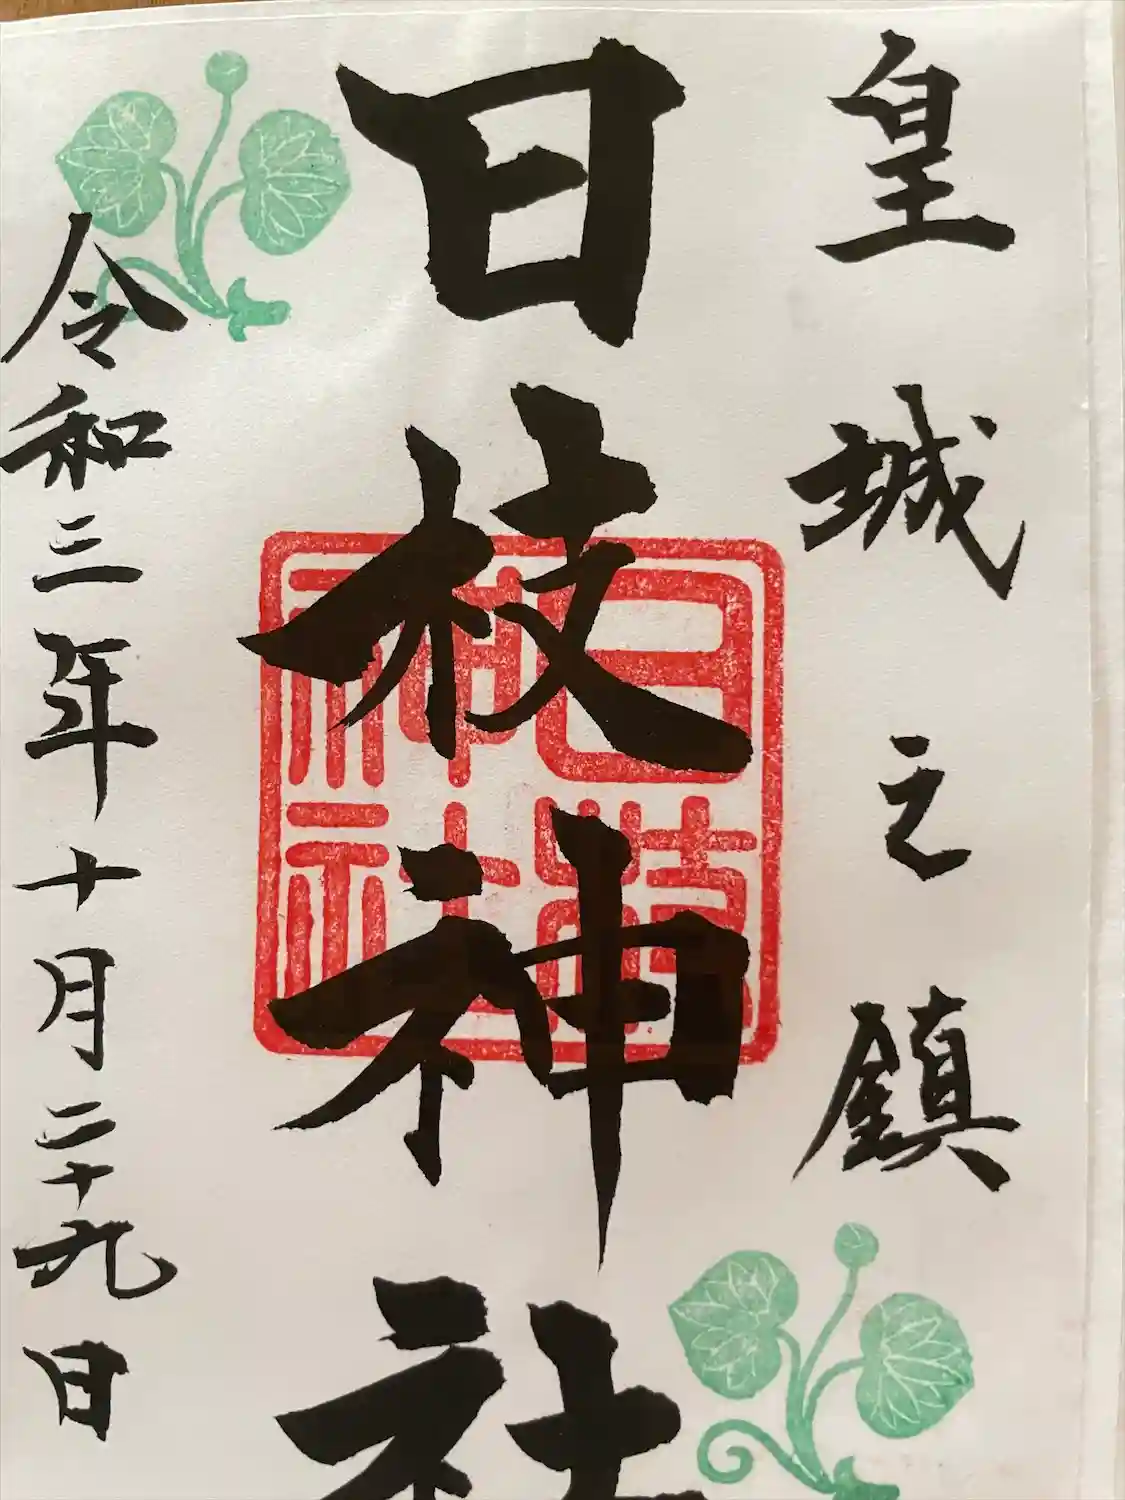 皇城之鎮
日枝神社
日枝神社
令和三年十月二十九日